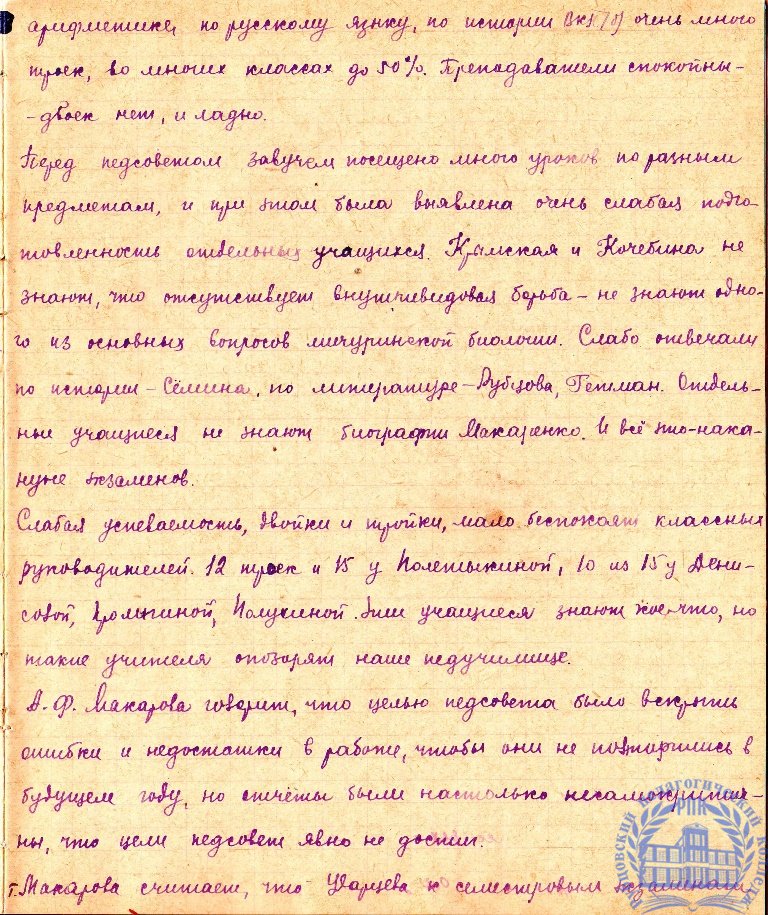 арифметике, по русскому языку, по истории ВКП(б) очень много
троек, во многих классах до 50%. Преподаватели спокойны -
- двоек нет, и ладно.
Перед педсоветом завучем посещено много уроков по разным
предметам, и при этом была выявлена очень слабая подго-
товленность отдельных учащихся. Крымская и Кочебина не
знают, что отсутствует внутривидовая борьба - не знают одно-
го из основных вопросов мичуринской биологии. Слабо отвечали
по истории - Сёмина, по литературе - Рубцова, Гетман. Отдель-
ные учащиеся не знают биографии Макаренко. И всё это - нака-
нуне экзаменов.
Слабая успеваемость, двойки и тройки, мало беспокоят классных
руководителей. 12 троек и 15 у Полетыкиной, 10 из 15 у Дени-
совой, Полухиной. Эти учащиеся знают кое-что, но
такие учителя опозорят наше педучилище.
А. Ф. Макарова говорит, что целью педсовета было вскрыть
ошибки и недостатки в работе, чтобы они не повторились в
будущем году, но отчёты были настолько несамокритич-
ны, что цели педсовет явно не достиг.
т. Макарова считает, что Ударцева к семестровым экзаменам
Рубцовский Педагогический Колледж
РПК